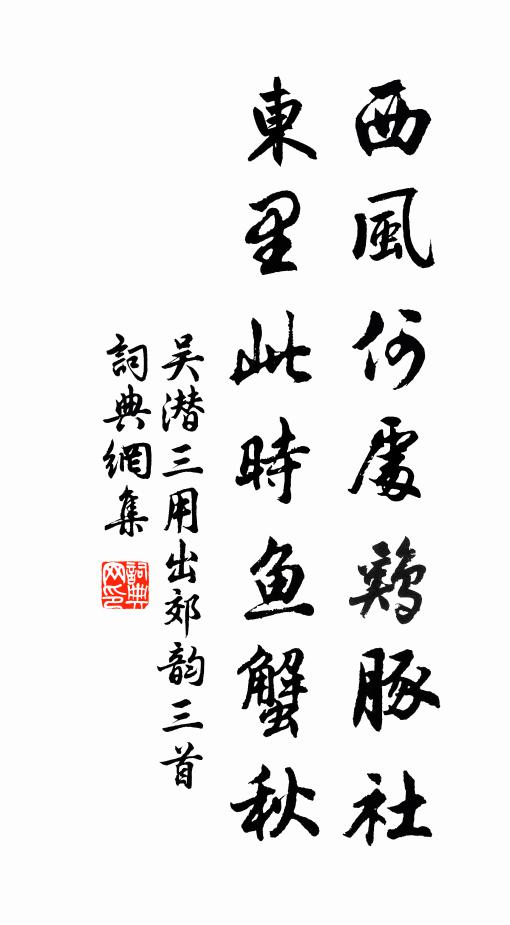 西風何處鷄豚社
東里此時鱼蟹秋
吴潜三用出郊韵三首
詞典網集
詞典网印